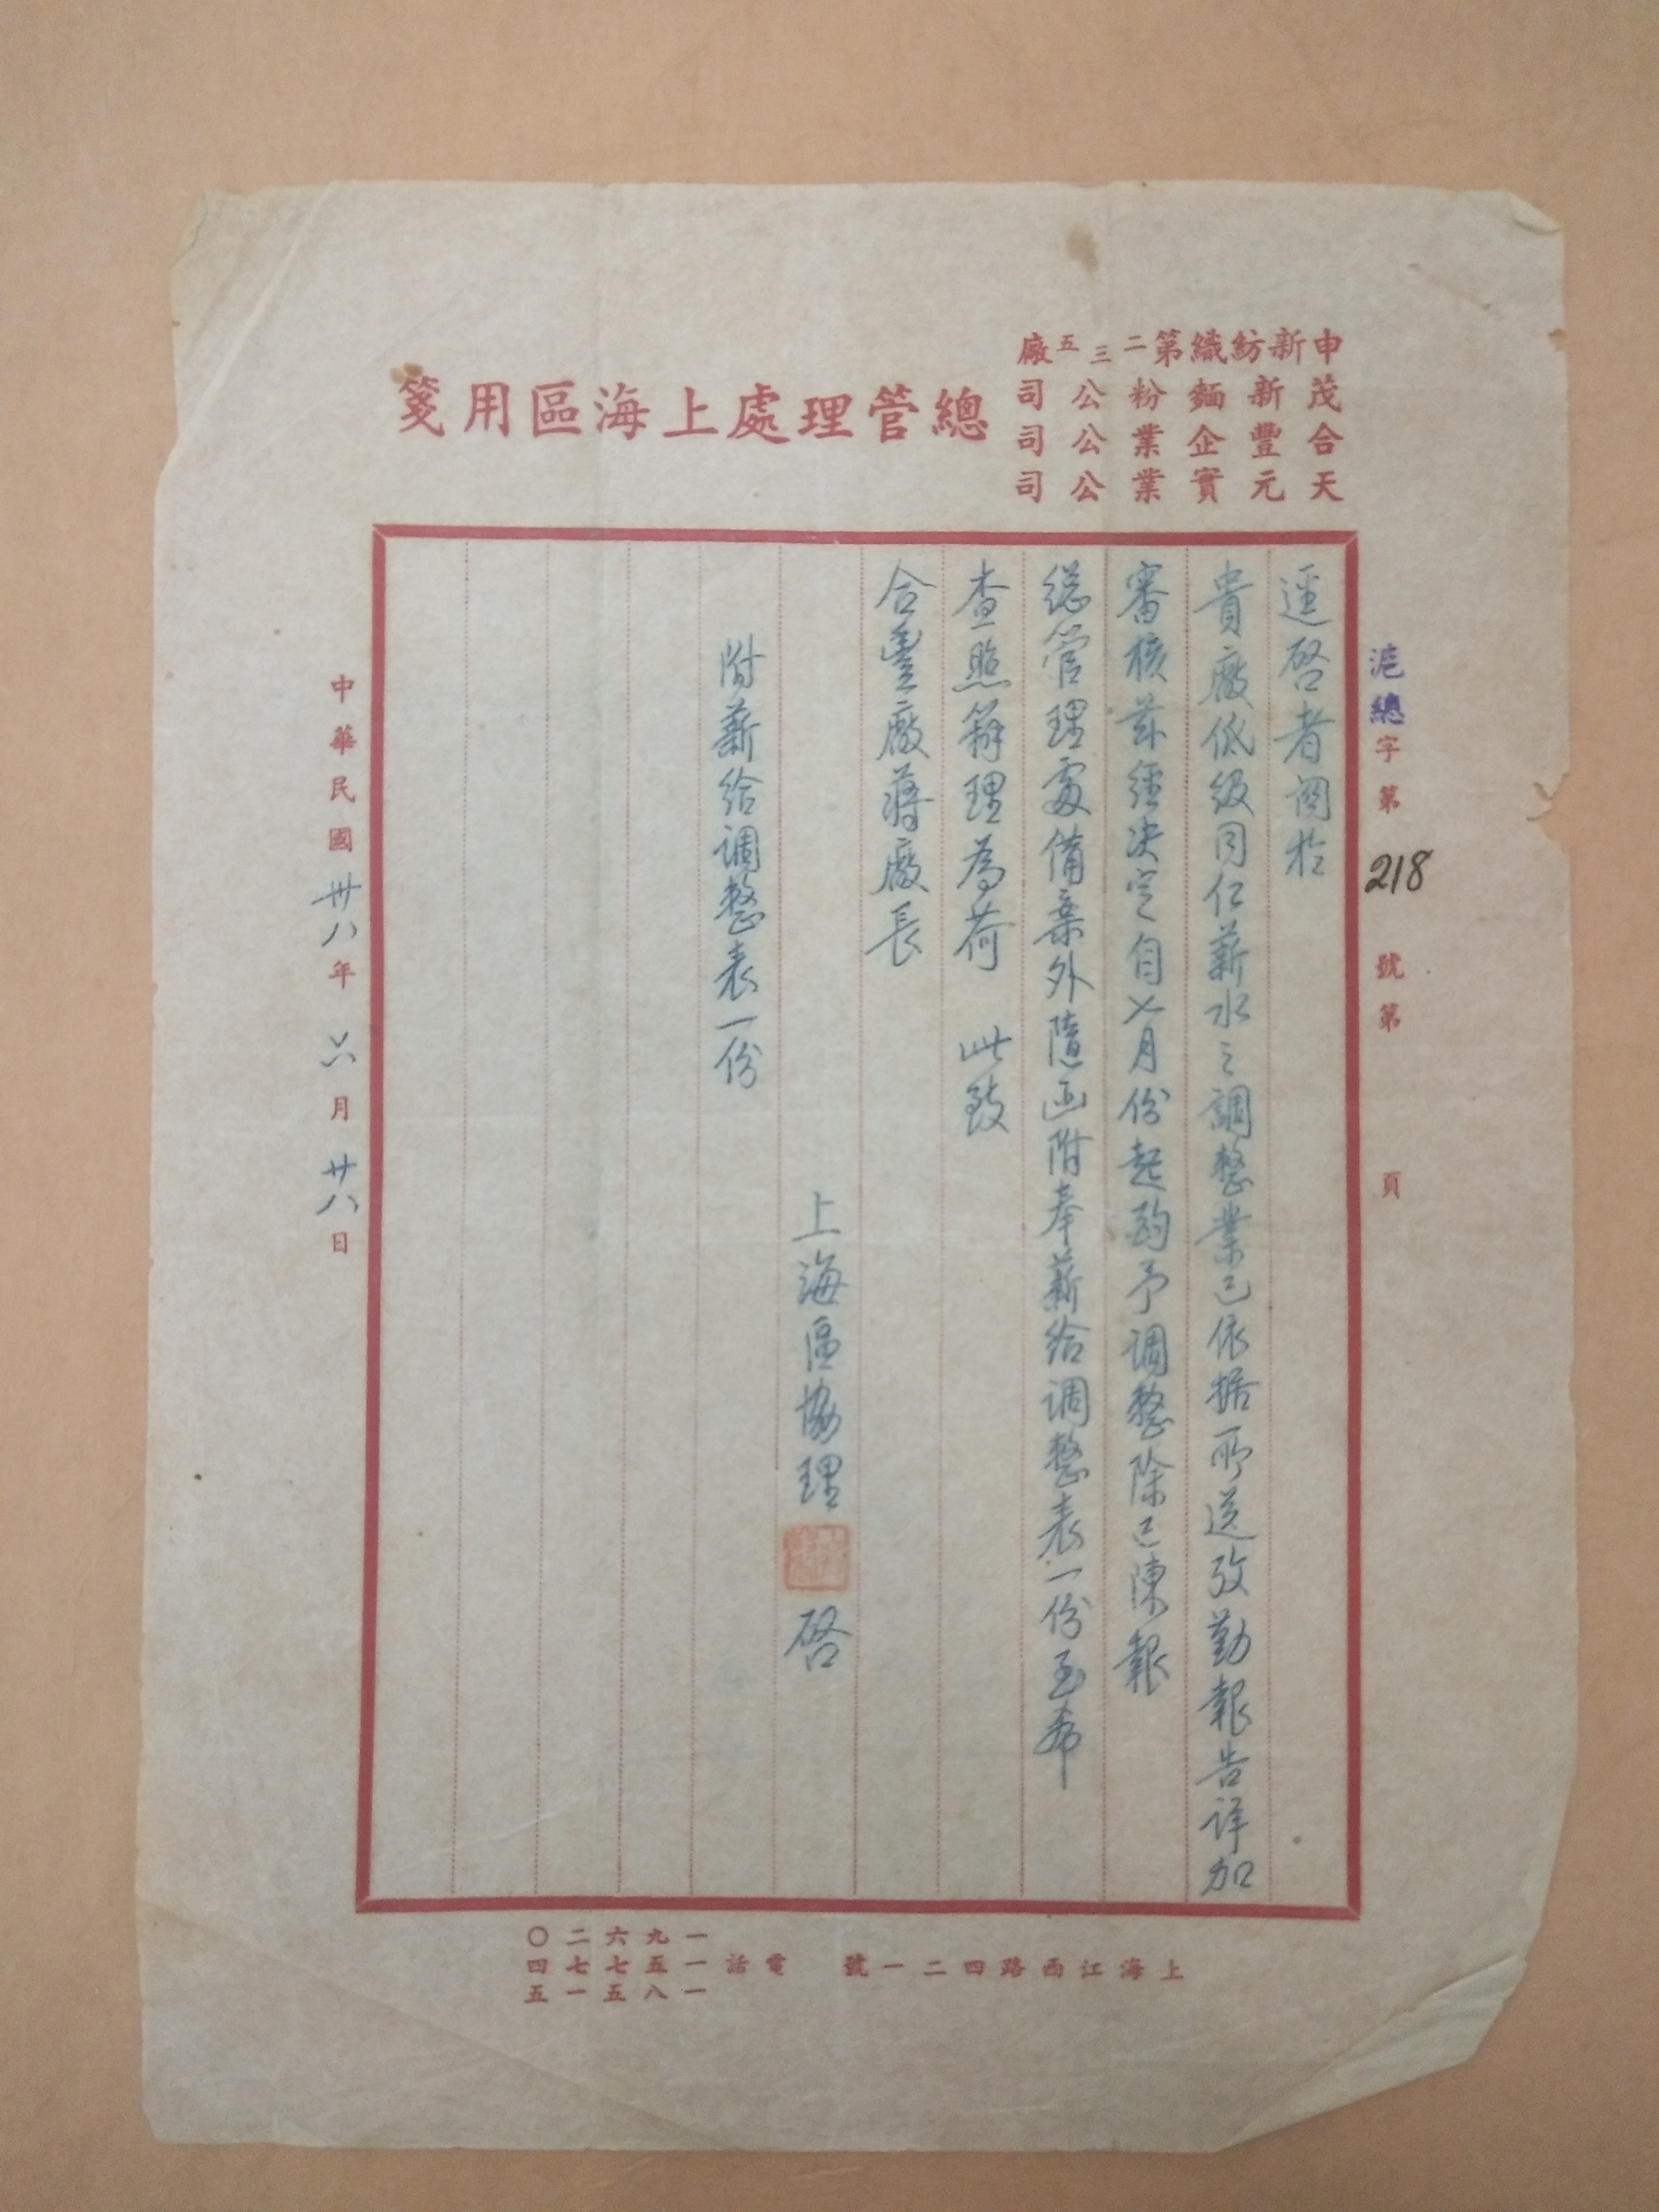 申新紡織第二三五廠
茂新麵粉公司
合豐企業公司
天元實業公司
總管理處上海區用箋
滬總字第218號第 頁
逕啓者関於
貴廠低級同仁薪水之調整業已依据所送攷勤報告详加
審核茲經决定自七月份起酌予调整除已陳報
総管理處備案外隨函附奉薪给调整表一份至希
查照辦理為荷 此致
合豐廠蔣廠長
上海區協理
啓
附薪给调整表一份
中華民國卅八年六月廿八日
上海江西路四二一號 電話
一九六二〇
一五七七四
一八五一五